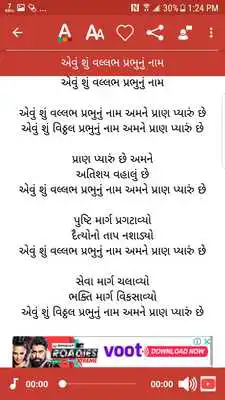 30% 1:24 PM
એવું શું વલ્લભ પ્રભુનું નામ
એવું શું વલ્લભ પ્રભુનું નામ
એવું શું વલ્લભ પ્રભુનું નામ અમને પ્રાણ પ્યારું છે
એવું શું વિઠ્ઠલ પ્રભુનું નામ અમને પ્રાણ પ્યારું છે
પ્રાણ પ્યારું છે અમને
અતિશય વહાલું છે
એવું શું વલ્લભ પ્રભુનું નામ અમને પ્રાણ પ્યારું છે
પુષ્ટિ માર્ગ પ્રગટાવ્યો
દૈત્યોનો તાપ નશાડ્યો
એવું શું વલ્લભ પ્રભુનું નામ અમને પ્રાણ પ્યારું છે
સેવા માર્ગ ચલાવ્યો
ભક્તિ માર્ગ વિકસાવ્યો
એવું શું વિઠ્ઠલ પ્રભુનું નામ અમને પ્રાણ પ્યારું છે
ROADIES
XTREME
voot
DOWNLOAD NOW
00:00 00:00